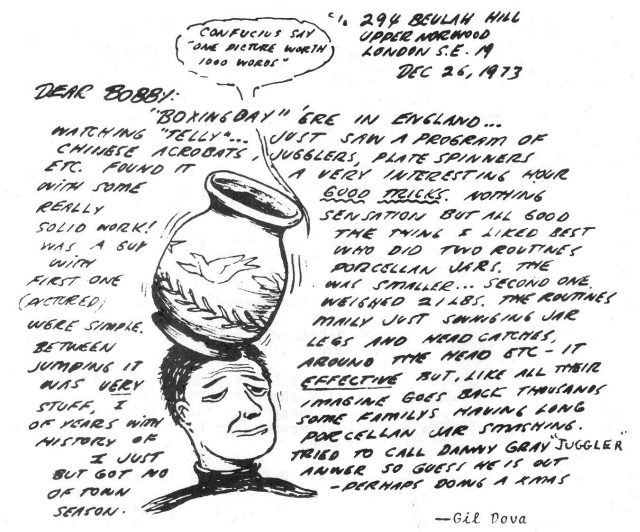 CONFUCIUS SAY
"ONE PICTURE WORTH
1000 WORDS"
℅ 294 BEULAH HILL
UPPER NORWOOD
LONDON S.E. 19
DEC 26, 1973
DEAR BOBBY:
"BOXING DAY" 'ERE IN ENGLAND...
WATCHING "TELLY"... JUST SAW A PROGRAM OF
CHINESE ACROBATS, JUGGLERS, PLATE SPINNERS
ETC. FOUND IT A VERY INTERESTING HOUR
WITH SOME GOOD TRICKS. NOTHING
REALLY SENSATION BUT ALL GOOD
SOLID WORK! THE THING I LIKED BEST
WAS A GUY WHO DID TWO ROUTINES
WITH PORCELLAN JARS. THE
FIRST ONE WAS SMALLER... SECOND ONE
(PICTURED) WEIGHED 21 LBS. THE ROUTINES
WERE SIMPLE. MAILY JUST SWINGING JAR
BETWEEN LEGS AND HEAD CATCHES,
JUMPING IT AROUND THE HEAD ETC - IT
WAS VERY EFFECTIVE BUT, LIKE ALL THEIR
STUFF, I IMAGINE GOES BACK THOUSANDS
OF YEARS WITH SOME FAMILYS HAVING LONG
HISTORY OF PORCELLAN JAR SMASHING.
I JUST TRIED TO CALL DANNY GRAY "JUGGLER"
BUT GOT NO ANWER SO GUESS HE IS OUT
OF TOWN - PERHAPS DOING A XMAS
SEASON.
—Gil Dova